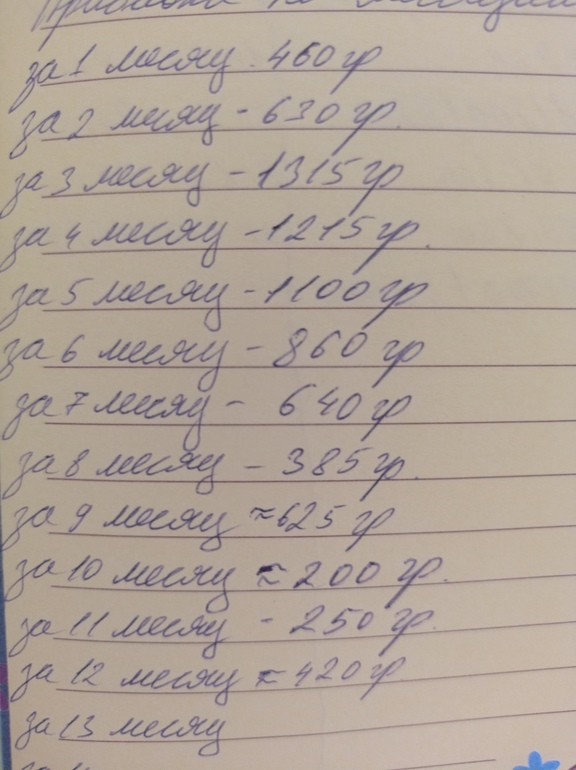 за 1 месяц - 460 гр
за 2 месяц - 630 гр.
за 3 месяц - 1315 гр
за 4 месяц - 1215 гр.
за 5 месяц - 1100 гр
за 6 месяц - 860 гр
за 7 месяц - 640 гр
за 8 месяц - 385 гр.
за 9 месяц ≈ 625 гр
за 10 месяц ≈ 200 гр.
за 11 месяц - 250 гр.
за 12 месяц ≈ 420 гр
за 13 месяц